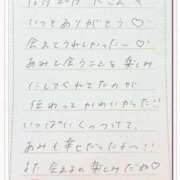 いつもありがとう♡
会えてうれしかったー♡
あみと会うことを楽しみ
にしてくれてたのが
伝わってかわいかった!!
いっぱいくっつけて、
あみも幸せだったもっ!!
また会えるの楽しみだね♡